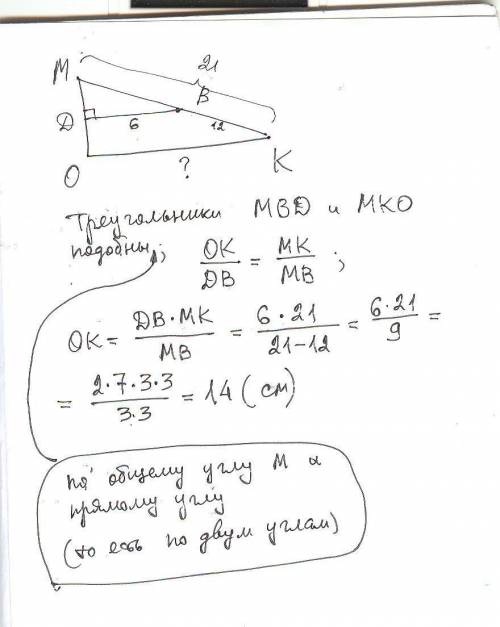 21
M
B
D
6
12
O
?
K
Треугольники MBD и MKO
подобны; OK/DB = MK/MB ;
OK = DB·MK/MB = 6·21/21-12 = 6·21/9 =
= 2·7·3·3/3·3 = 14 (см)
по общему углу M и
прямому углу
(то есь по двум углам)